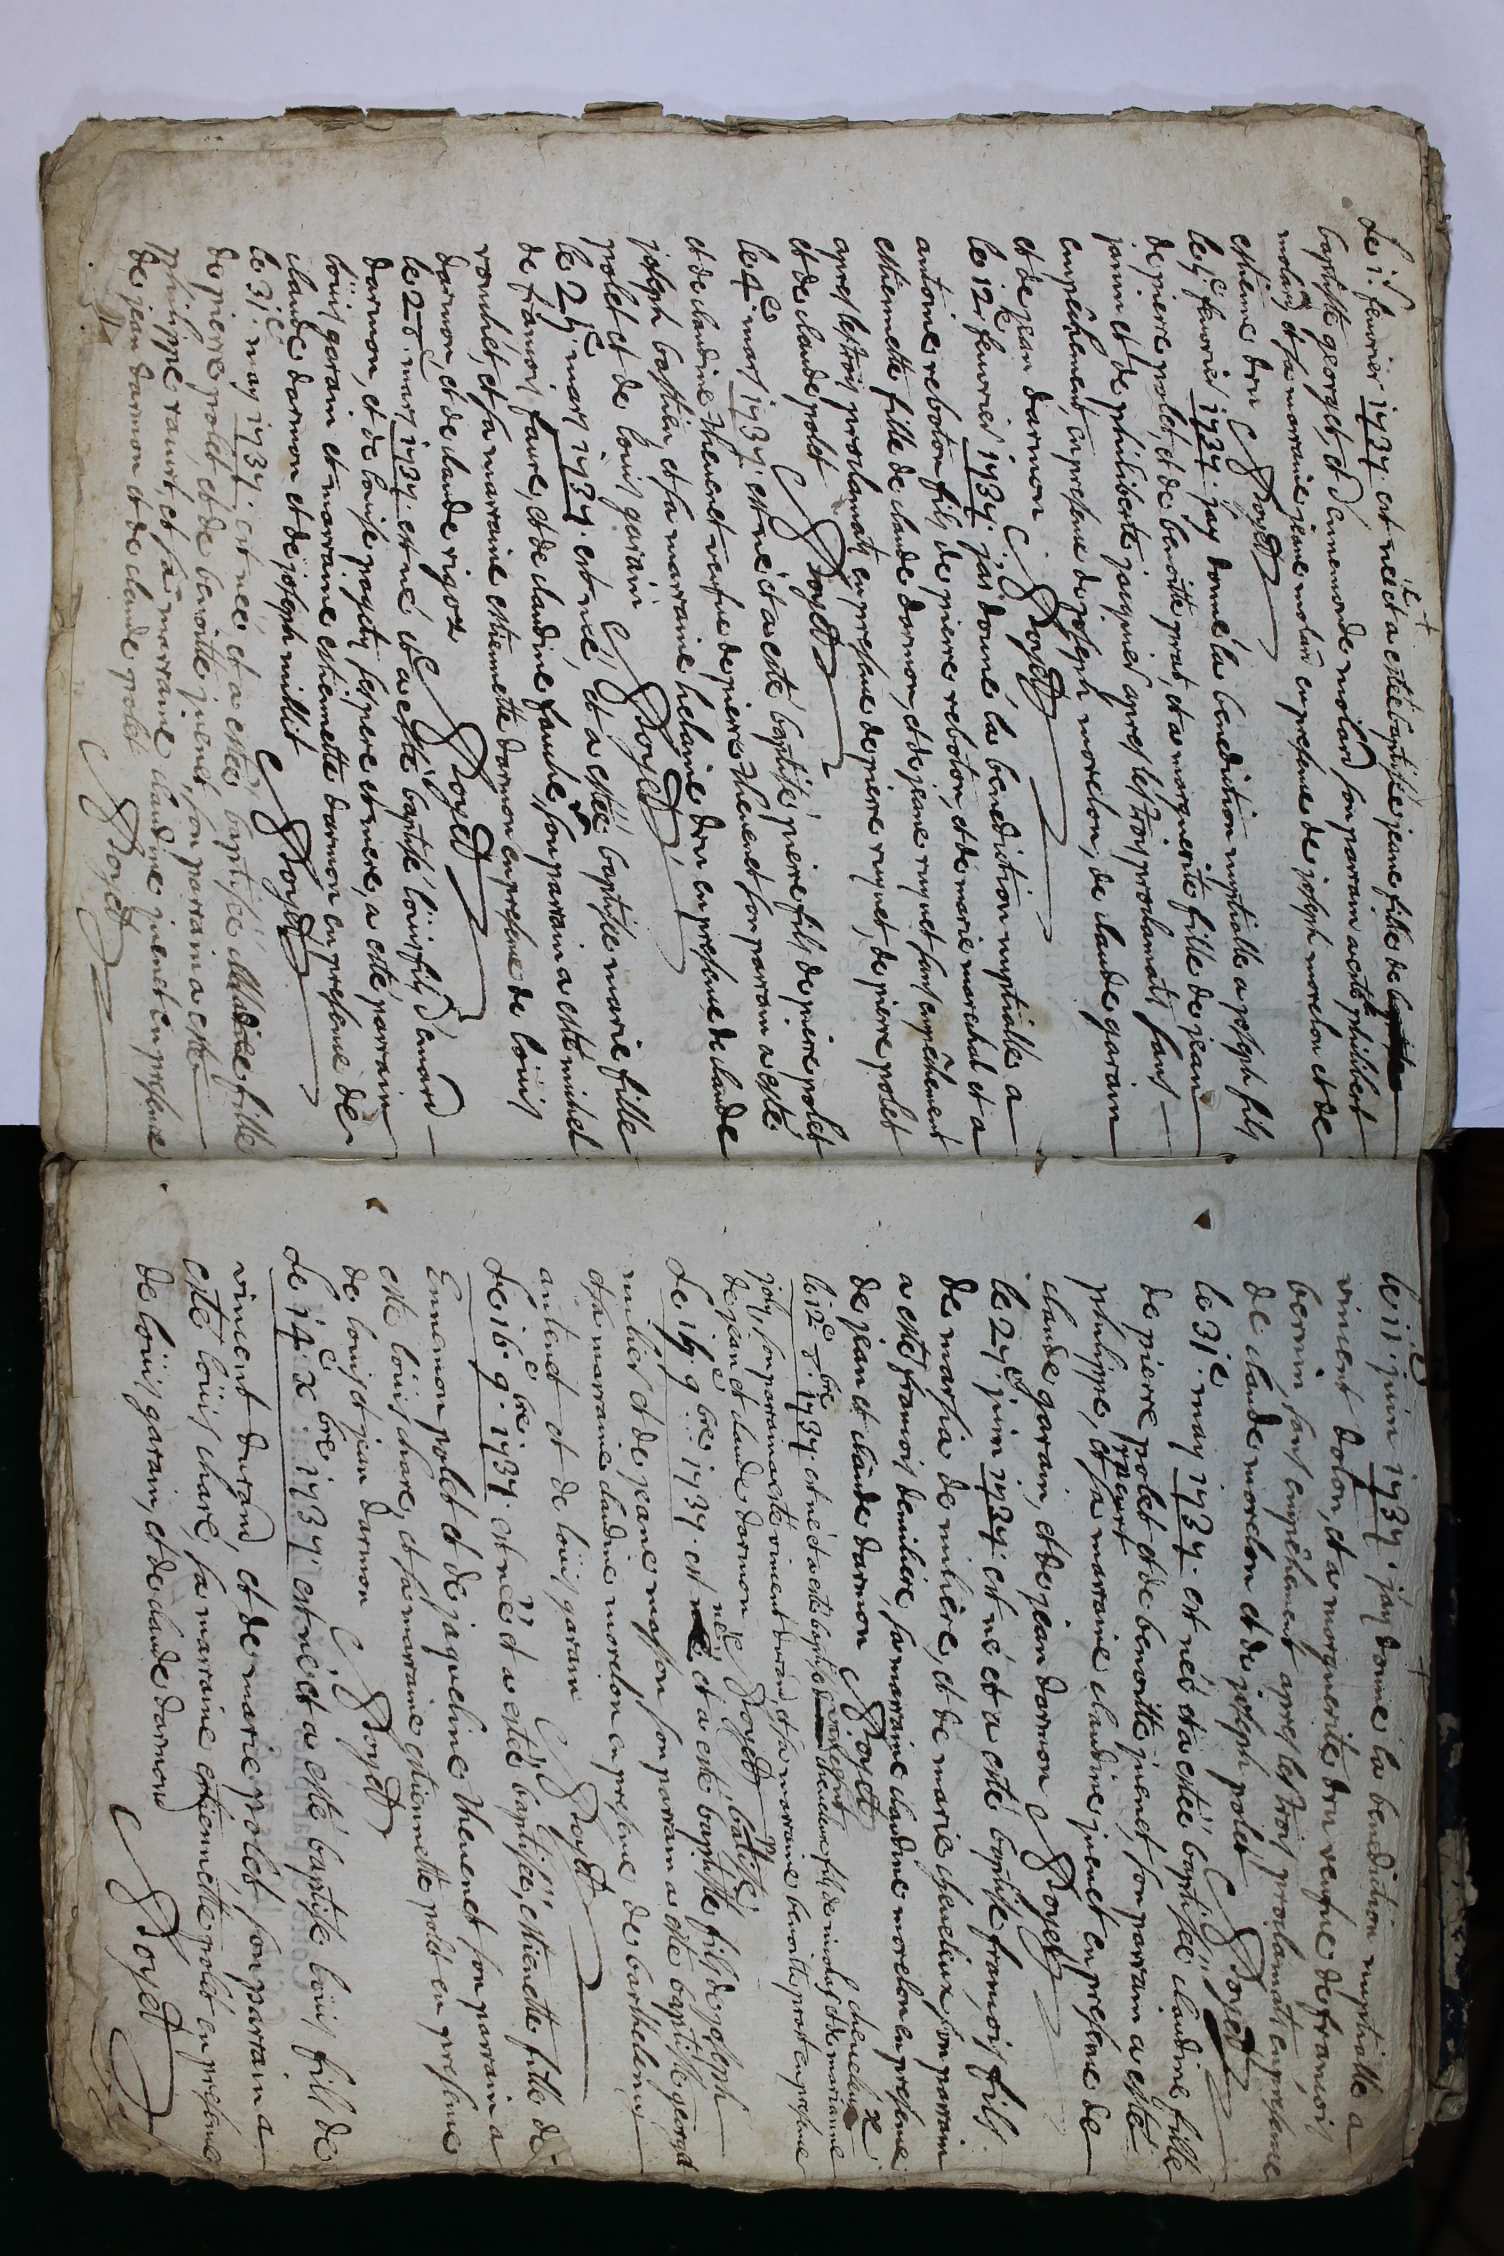 Le i.r feurier 1737. est néé et a estéé baptisée jeane fille de
baptiste georget, et d'ennemonde molard son parrain a esté philibert
molard et sa marraine jeane molard en presence de joseph morelon et de
estiene dru Doyet
le feurier 1737. jay donné la benediction nuptialle a joseph fils
de pierre polet, et de benoitte prat, et a marguerite fille de jean
janin et de philiberte jaquier apres les trois proclamats sans
empêchement, en presence de joseph morelon, de claude garain
et de jean darmon. Doyet
le 12.e feurier 1737. jai donné la benediction nuptialle a
antoine reboton fils de pierre reboton, et de marie marechal et a
estiennette fille de claude darmon, et de jeane ruquet sans empêchement
apres les trois proclamats en presence de pierre ruquet, de pierre polet
et de claude polet Doyet
le 4.e mars 1737. est né et a esté baptisé pierre fils de pierre polet
et de claudine thevenet vefue de pierre thevenet son parrain a esté
joseph bastien, et sa marraine helaine dru en presence de claude
polet et de louis garain Doyet
le 27.e mars 1737. est néé, et a estéé baptisée marie fille
de francois faure, et de claudine fauche, son parrain a esté michel
rouchet, et sa marraine estiennette darmon en presence de louis
darmon, et de claude rigoz Doyet
le 28. mars 1737. est né et a esté baptisé louis fils d'emard
darmon, et de louise payets ses pere et mere, a esté parrain
louis garain et marraine estiennette darmon en presence de
claude darmon et de joseph millit Doyet
le 31.e may 1737. est néé et a estéé baptiséé claudine fille
de pierre polet, et de benoitte juenet, son parrain a esté
philippe raunt, et sa marraine claudine juenet en presence
de jean darmon et de claude polet Doyet
le 11.e juin 1737. jay donné la benediction nuptialle a
vincent dolon, et a marguerite dru vefue de francois
bernin, sans empêchement apres les trois proclamats en presence
de claude morelon et de joseph polet Doyet
le 31.e may 1737. est néé et a estéé baptiséé claudine fille
de pierre polet et de benoitte juenet, son parrain a esté
philippe raunt, et sa marraine claudine juenet en presence de
claude garain, et de jean darmon Doyet
le 27.e juin 1737. est né et a esté baptisé francois fils
de marsia de miliere, et de marie cheneliux son parrain
a esté francois demiliere, sa marraine claudine morelon en presence
de jean et claude darmon Doyet
le 12.e 8.bre 1737. est né et a esté baptisé fils de nicolas et de marianne
joly, son parrain a esté vincent durand, et sa marraine benoitte prat en presence
de jean et claude darmon Doyet
Le 17.e 9.bre 1737. est né et a esté baptisé baptiste fils de joseph
mulier et de jeane masson son parrain a esté baptiste georget
et sa marraine claudine morelon en presence de barthelemy
antenet et de louis garain Doyet
Le 16.e 9.bre 1737. est néé et a estéé baptiséé, estienette fille de
Ennemon polet et de jaqueline thevenet son parrain a
esté louis chare, et sa marraine estiennette polet en presence
de louis et jean darmon Doyet
Le 14.e x.bre 1737. est né et a esté baptisé louis fils de
vincent durand, et de marie polet, son parrain a
esté louis chare, sa marraine estiennette polet en presence
de louis garain, et de claude darmon Doyet